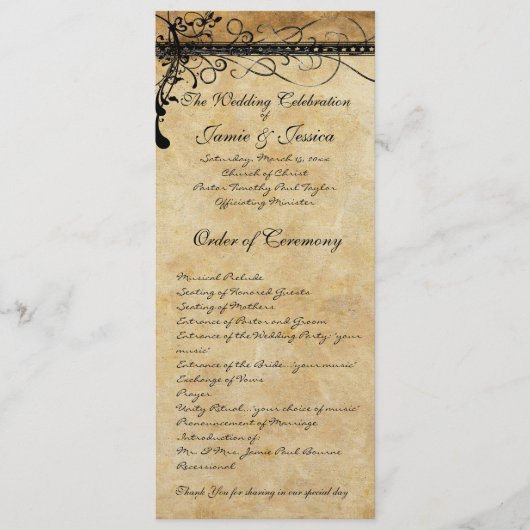 The Wedding Celebration
of
Jamie & Jessica
Saturday, March 15, 20xx
Church of Christ
Pastor Timothy Paul Taylor
Officiating Minister
Order of Ceremony
Musical Prelude
Seating of Honored Guests
Seating of Mothers
Entrance of Pastor and Groom
Entrance of the Wedding Party: 'your
music"
Entrance of the Bride..."your music"
Exchange of Vows
Prayer
Unity Ritual..."your choice of music"
Pronouncement of Marriage
Introduction of:
Mr. & Mrs. Jamie Paul Bourne
Recessional
Thank You for sharing in our special day